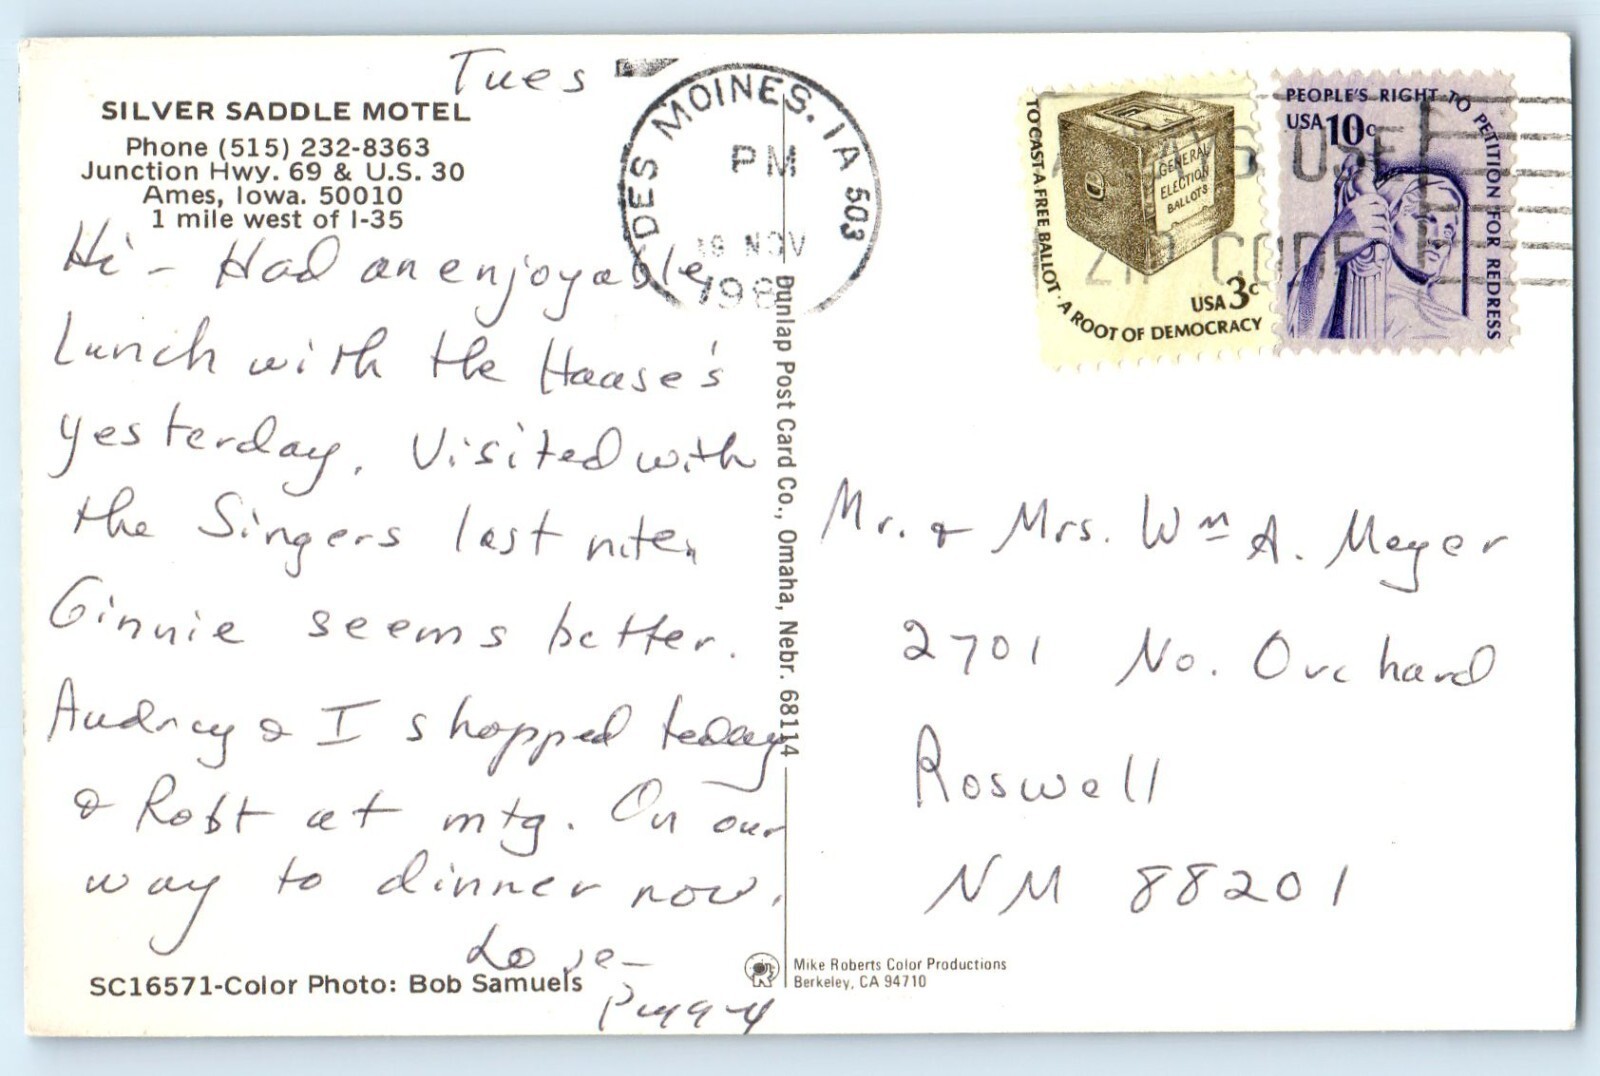 Tues
SILVER SADDLE MOTEL
Phone (515) 232-8363
Junction Hwy. 69 & U.S. 30
Ames, Iowa. 50010
1 mile west of I-35
Hi - Had an enjoyable
Lunch with the Haase's
yesterday. Visited with
the Singers last nite.
Ginnie seems better.
Audrey & I shopped today
& Robt at mtg. On our
way to dinner now.
Love -
SC16571-Color Photo: Bob Samuels
DES MOINES, IA 503
PM
NOV
198
Dunlap Post Card Co., Omaha, Nebr. 68114
TO CAST A FREE BALLOT · A ROOT OF DEMOCRACY
GENERAL
ELECTION
BALLOTS
USA 3c
PEOPLE'S RIGHT TO PETITION FOR REDRESS
USA 10c
ALWAYS USE
ZIP CODE
Mr. & Mrs. Wm A. Meyer
2701 No. Orchard
Roswell
NM 88201
Mike Roberts Color Productions
Berkeley, CA 94710